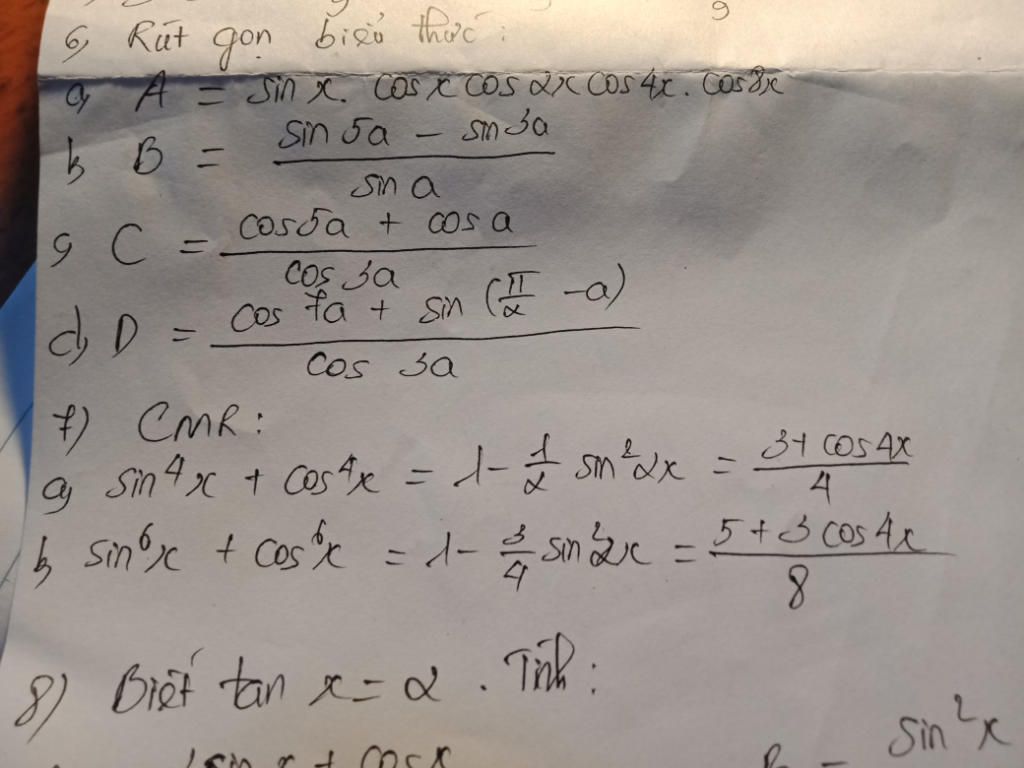 6, Rút gọn biểu thức:
a, A = sin x. cos x cos 2x cos 4x. cos 8x
b, B = (sin 5a - sin 3a) / sin a
c, C = (cos 5a + cos a) / cos 3a
d, D = (cos 7a + sin (π/2 - a)) / cos 3a
7) CMR:
a, sin⁴x + cos⁴x = 1 - 1/2 sin²2x = (3 + cos 4x) / 4
b, sin⁶x + cos⁶x = 1 - 3/4 sin²2x = (5 + 3 cos 4x) / 8
8) Biết tan x = 2. Tính:
sin x + cos x
sin²x